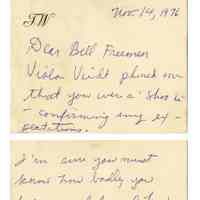 Nov. 14, 1976
TW
Dear Bell Freeman
Viola Veidt phoned me
that you were a "Shoo in"
- confirming my ex-
pectations.
I'm sure you must
know how badly you